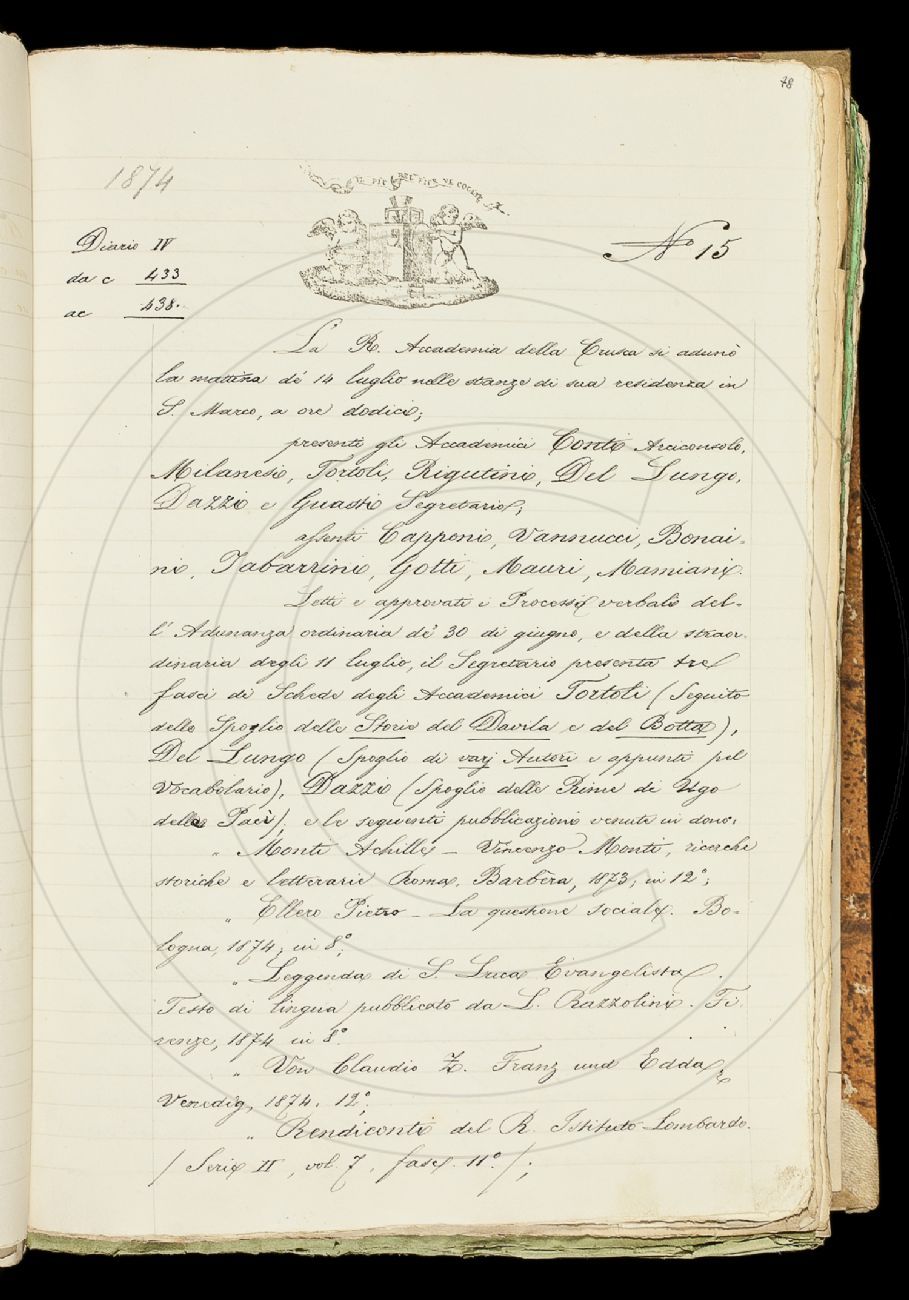 78
1874
IL PIÙ BEL FIOR NE COGLIE
Diario IV
da c 433
ac 438.
No 15
La R. Accademia della Crusca si adunò
la mattina de' 14 luglio nelle stanze di sua residenza in
S. Marco, a ore dodici;
presenti gli Accademici Conti Arciconsolo,
Milanesi, Tortoli, Rigutini, Del Lungo,
Dazzi e Guasti Segretario;
assenti Capponi, Vannucci, Bonai-
ni, Tabarrini, Gotti, Mauri, Mamiani.
Letti e approvati i Processi verbali del-
l'Adunanza ordinaria de' 30 di giugno, e della straor-
dinaria degli 11 luglio, il Segretario presenta tre
fasci di Schede degli Accademici Tortoli (Seguito
dello Spoglio delle Storie del Davila e del Botta),
Del Lungo (Spoglio di varj Autori e appunti pel
Vocabolario), Dazzi (Spoglio delle Rime di Ugo
delle Paci), e le seguenti pubblicazioni venute in dono:
" Monti Achille - Vincenzo Monti, ricerche
storiche e letterarie Roma, Barbèra, 1873, in 12°;
" Ellero Pietro - La questione sociale. Bo-
logna, 1874, in 8°;
" Leggenda di S. Luca Evangelista.
Testo di lingua pubblicato da L. Razzolini. Fi-
renze, 1874 in 8°.
" Von Claudio Z. Franz und Edda,
Venedig, 1874. 12°;
" Rendiconti del R. Istituto Lombardo.
(Serie II, vol. 7, fasc. 11°.);